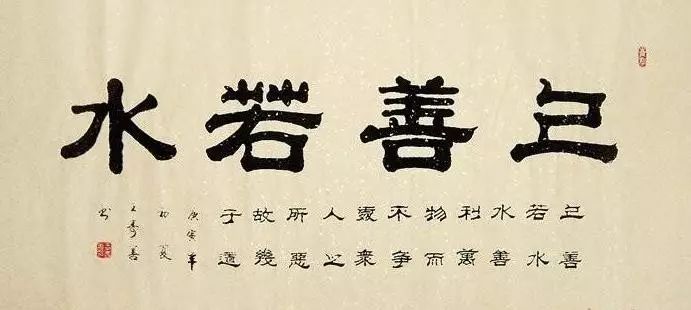 上善若水
上善
若水
水善
利萬
物而
不争
處衆
人之
所惡
故幾
于道
庚寅年
初夏
秀善
书